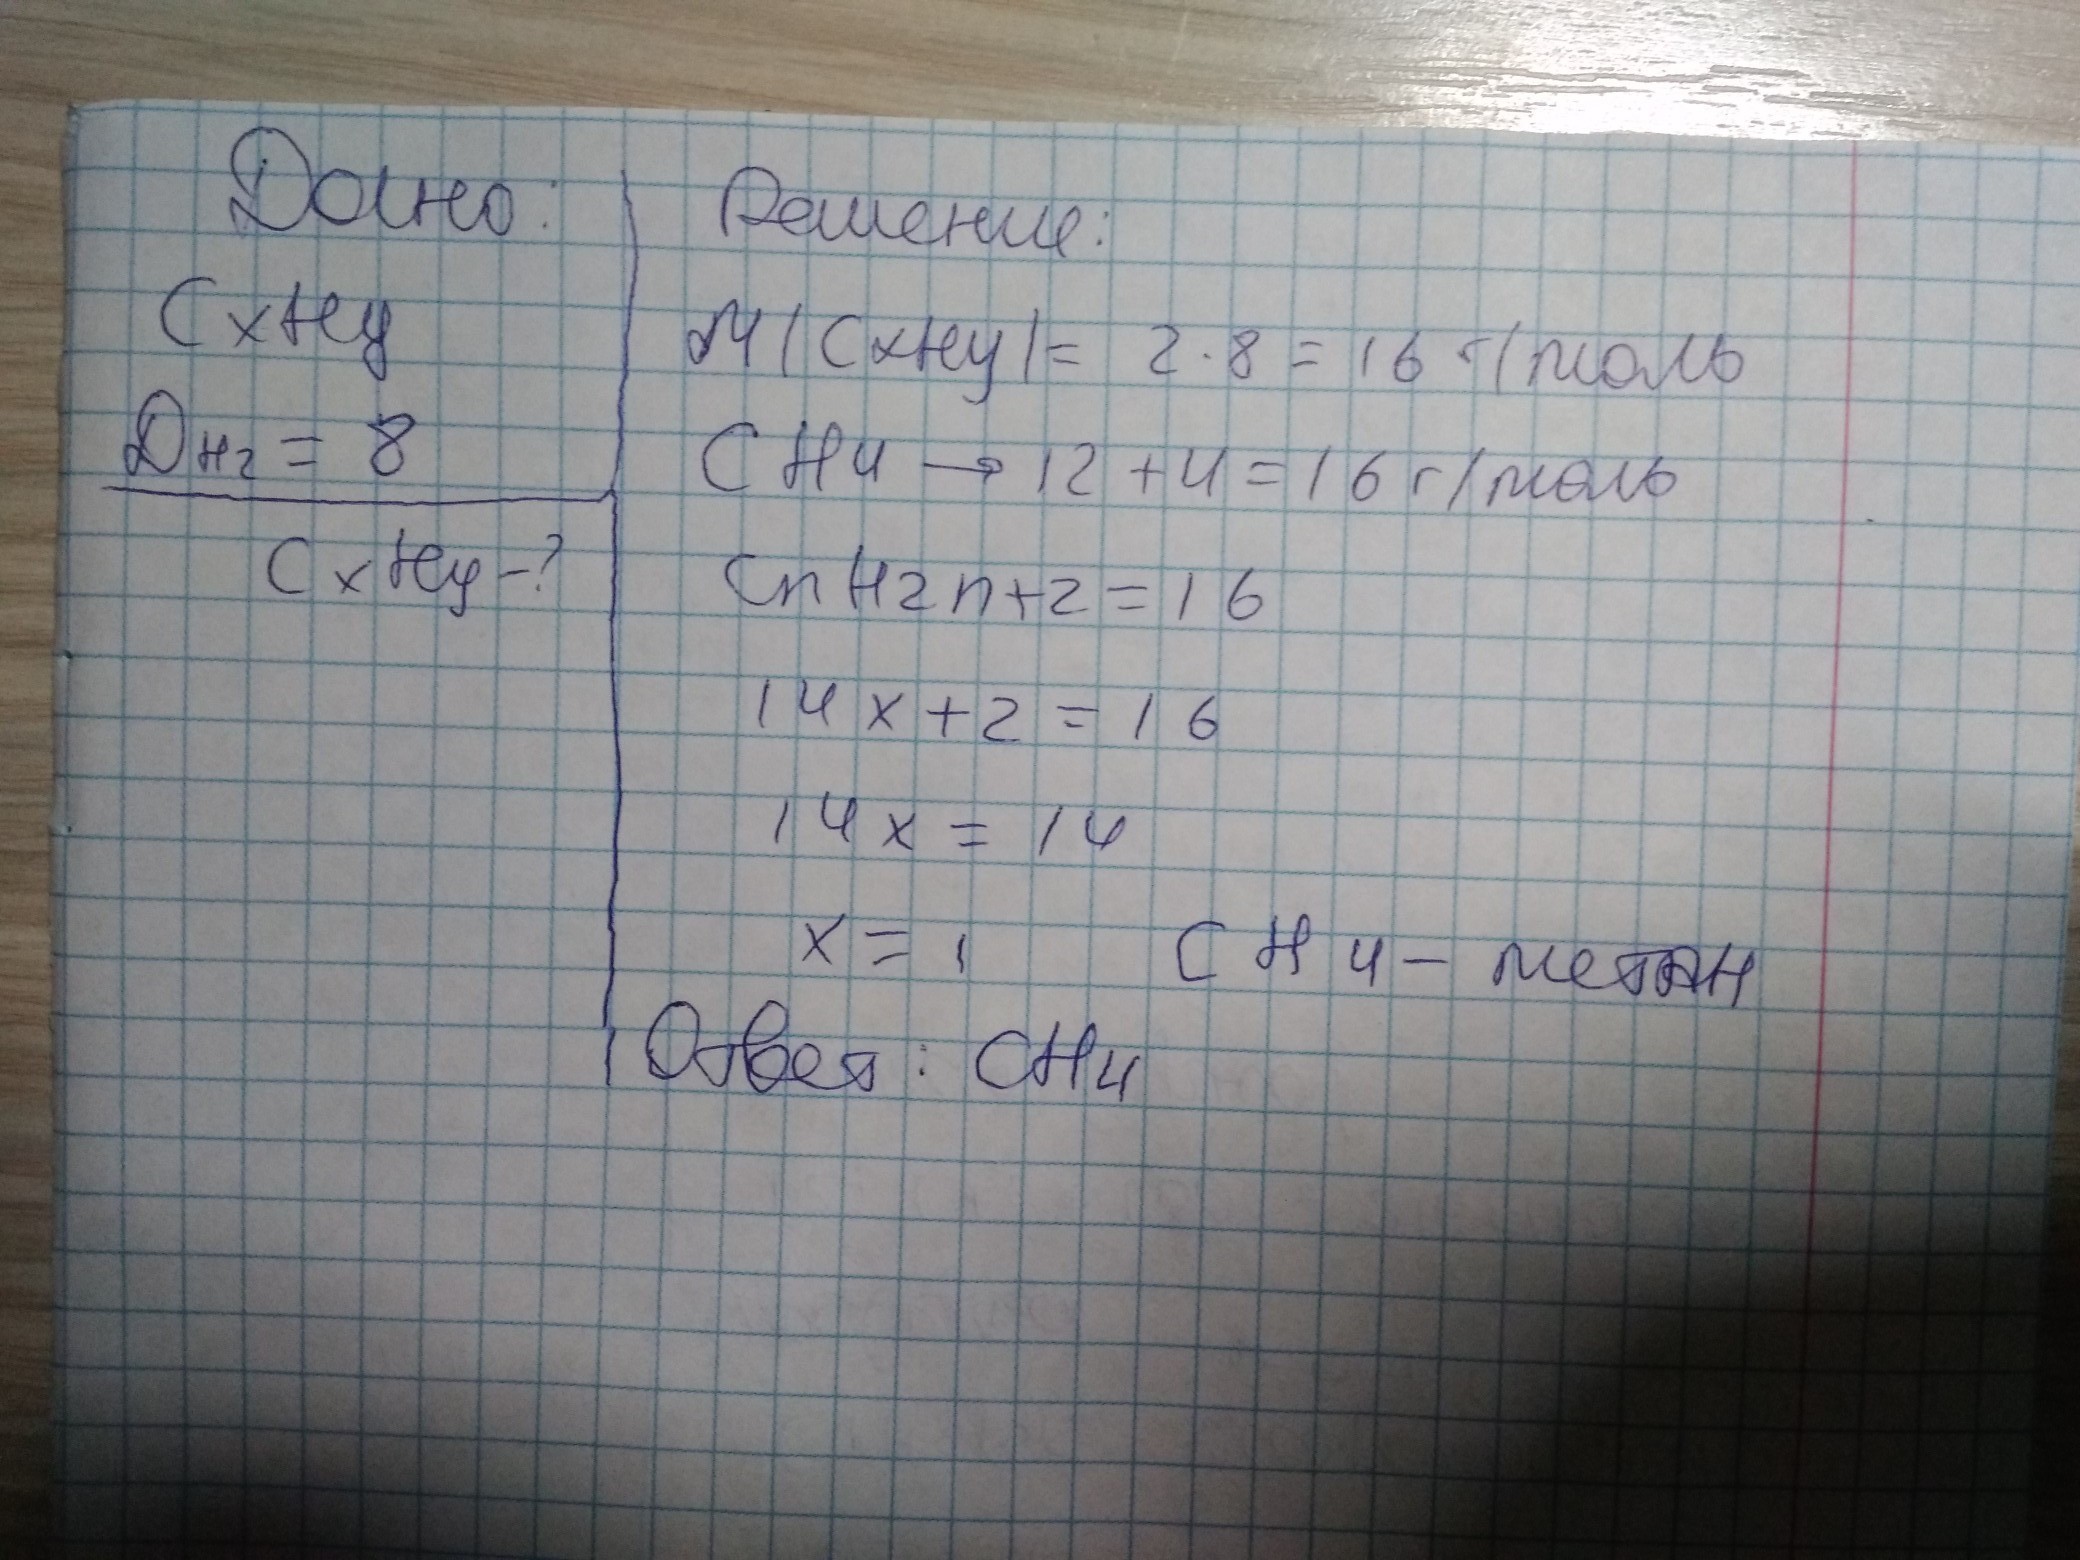 Дано:
CxHy
DH2 = 8
CxHy-?
Решение:
M(CxHy)= 2·8=16 г/моль
CH4 → 12+4=16 г/моль
CnH2n+2=16
14x+2=16
14x=14
x=1 CH4- метан
Ответ: CH4